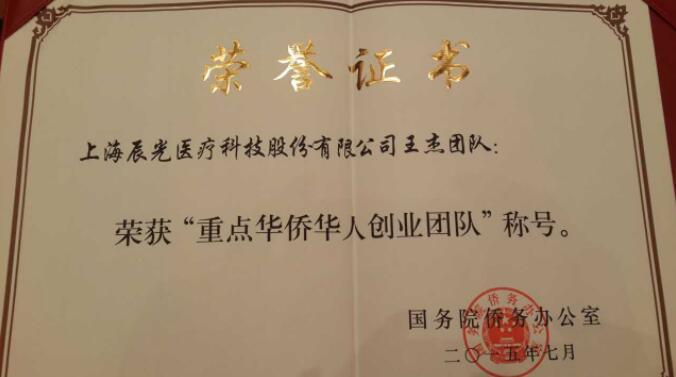 荣誉证书
上海辰光医疗科技股份有限公司王杰团队：
荣获“重点华侨华人创业团队”称号。
国务院侨务办公室
二〇一五年七月
国务院侨务办公室